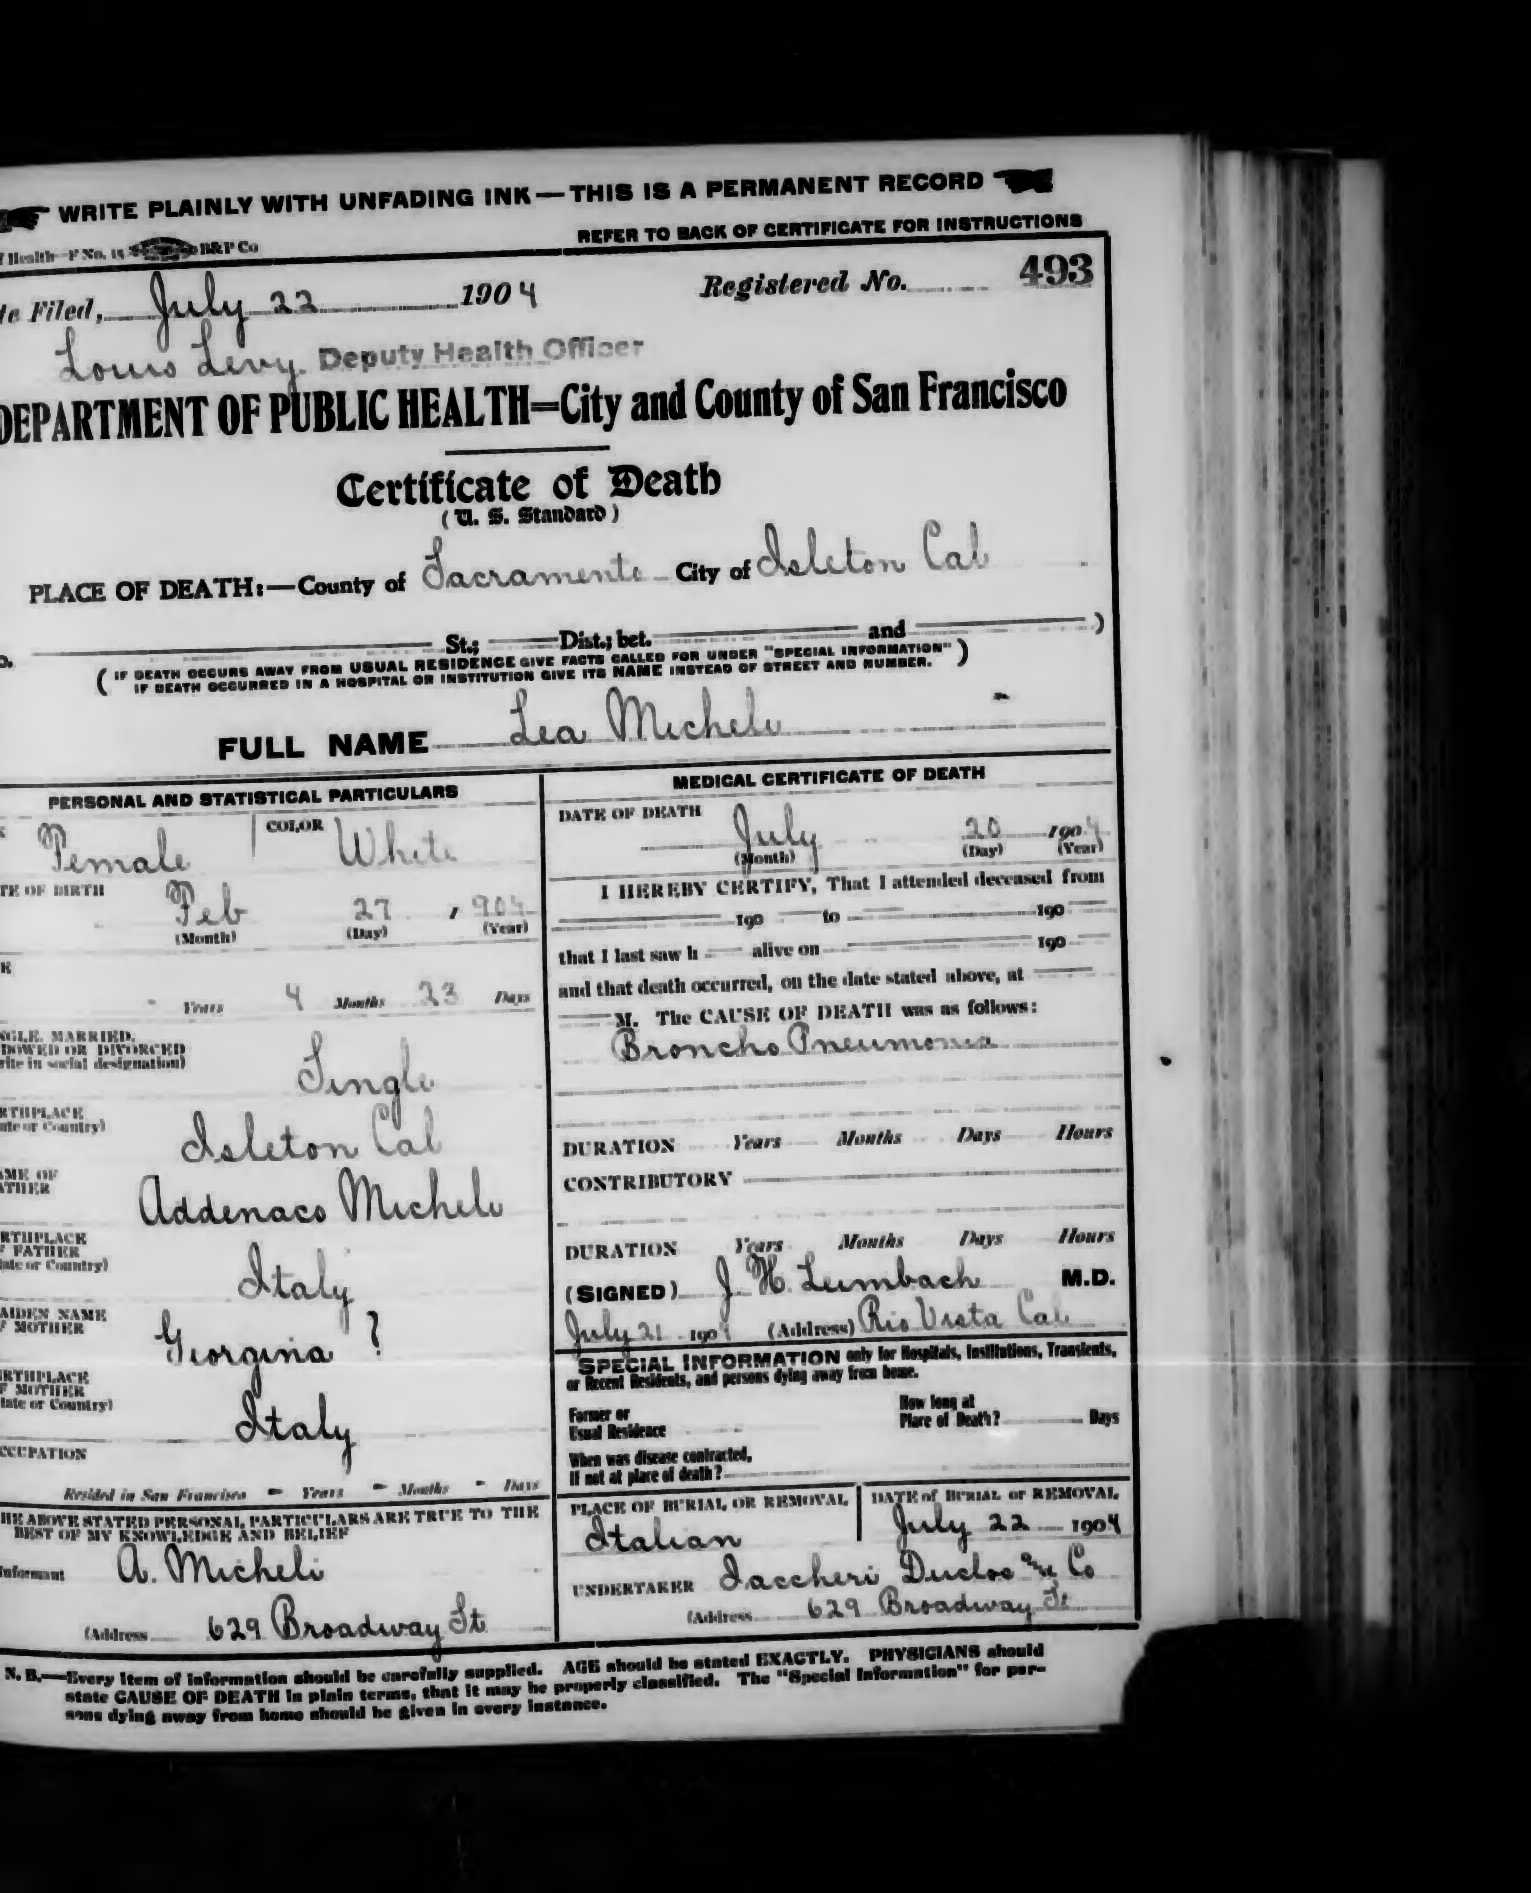 WRITE PLAINLY WITH UNFADING INK — THIS IS A PERMANENT RECORD
Health—F No. 15 B&P Co
REFER TO BACK OF CERTIFICATE FOR INSTRUCTIONS
te Filed, July 22 1904 Registered No. 493
Louis Levy. Deputy Health Officer
DEPARTMENT OF PUBLIC HEALTH=City and County of San Francisco
Certificate of Death
(U. S. Standard)
PLACE OF DEATH:—County of Sacramento City of Isleton Cal
o. St.; Dist.; bet. and )
( IF DEATH OCCURS AWAY FROM USUAL RESIDENCE GIVE FACTS CALLED FOR UNDER "SPECIAL INFORMATION" )
IF DEATH OCCURRED IN A HOSPITAL OR INSTITUTION GIVE ITS NAME INSTEAD OF STREET AND NUMBER.
FULL NAME Lea Micheli
PERSONAL AND STATISTICAL PARTICULARS
Female COLOR White
TE OF BIRTH
Feb 27 , 904
(Month) (Day) (Year)
- Years 4 Months 23 Days
NGLE, MARRIED,
DOWED OR DIVORCED
rite in social designation)
Single
RTHPLACE
ate or Country)
Isleton Cal
AME OF
ATHER
Addenaco Micheli
RTHPLACE
F FATHER
tate or Country)
Italy
AIDEN NAME
F MOTHER
Georgina ?
RTHPLACE
F MOTHER
tate or Country)
Italy
CCUPATION
Resided in San Francisco - Years - Months - Days
HE ABOVE STATED PERSONAL PARTICULARS ARE TRUE TO THE
BEST OF MY KNOWLEDGE AND BELIEF
nformant A. Micheli
(Address 629 Broadway St
MEDICAL CERTIFICATE OF DEATH
DATE OF DEATH
July 20 1904
(Month) (Day) (Year)
I HEREBY CERTIFY, That I attended deceased from
190 to 190
that I last saw h alive on 190
and that death occurred, on the date stated above, at
M. The CAUSE OF DEATH was as follows:
Broncho Pneumonia
DURATION Years Months Days Hours
CONTRIBUTORY
DURATION Years Months Days Hours
(SIGNED) J. H. Leimbach M.D.
July 21 1904 (Address) Rio Vista Cal
SPECIAL INFORMATION only for Hospitals, Institutions, Transients,
or Recent Residents, and persons dying away from home.
Former or
Usual Residence
How long at
Place of Death? Days
When was disease contracted,
If not at place of death?
PLACE OF BURIAL OR REMOVAL
Italian
DATE of BURIAL or REMOVAL
July 22 1904
UNDERTAKER Iaccheri Duclos and Co
(Address 629 Broadway St
N. B.—Every item of information should be carefully supplied. AGE should be stated EXACTLY. PHYSICIANS should
state CAUSE OF DEATH in plain terms, that it may be properly classified. The "Special Information" for per-
sons dying away from home should be given in every instance.